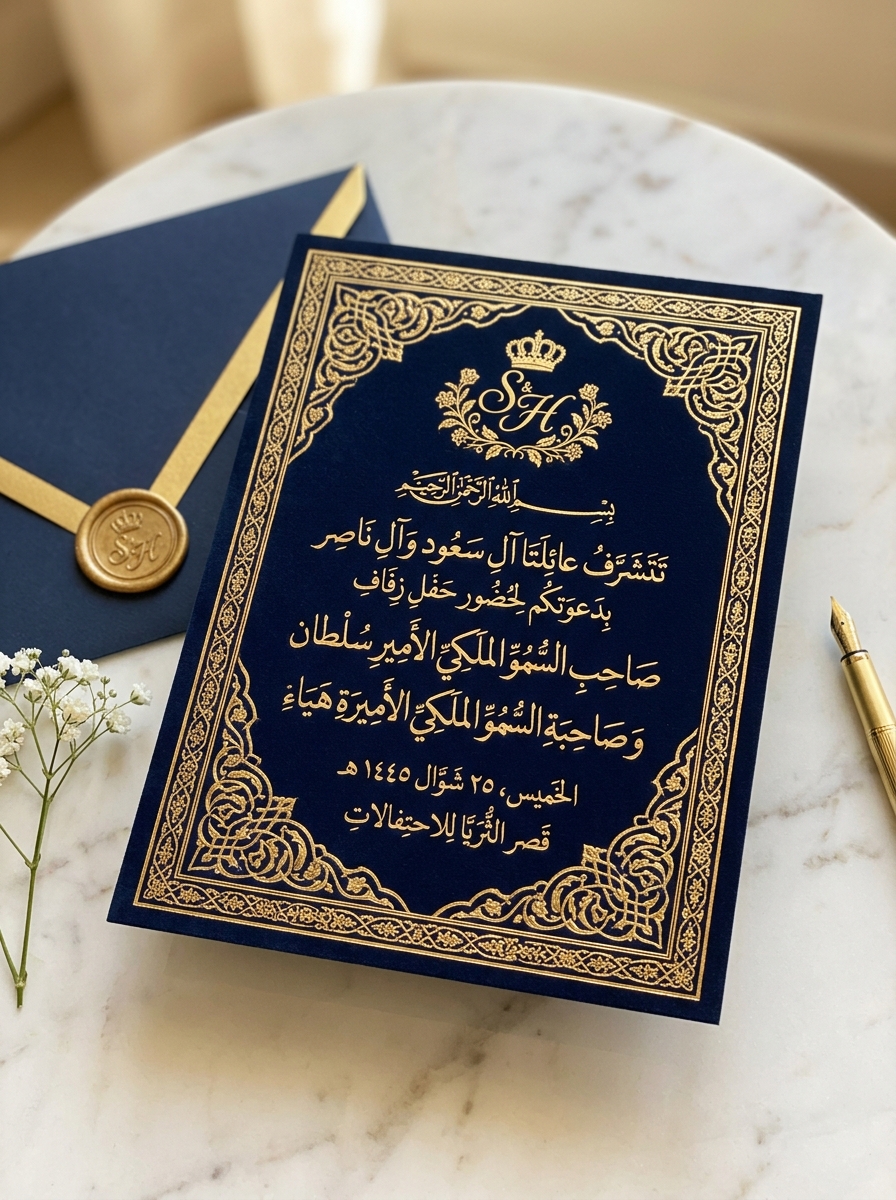 S & H
بِسْمِ اللهِ الرَّحْمٰنِ الرَّحِيْمِ
تَتَشَرَّفُ عائِلَتَا آلِ سَعُود وَآلِ نَاصِر
بِدَعوَتكُم لِحُضُور حَفَلِ زِفَافِ
صَاحِبِ السُّمُوِّ المَلَكِيِّ الأَمِيرِ سُلْطان
وَصَاحِبَةِ السُّمُوِّ المَلَكِيِّ الأَمِيرَةِ هَيَاءْ
الخَميس، ٢٥ شَوَّال ١٤٤٥ هـ
قَصر الثُّرَيَّا لِلاحتِفالاتِ
S&H